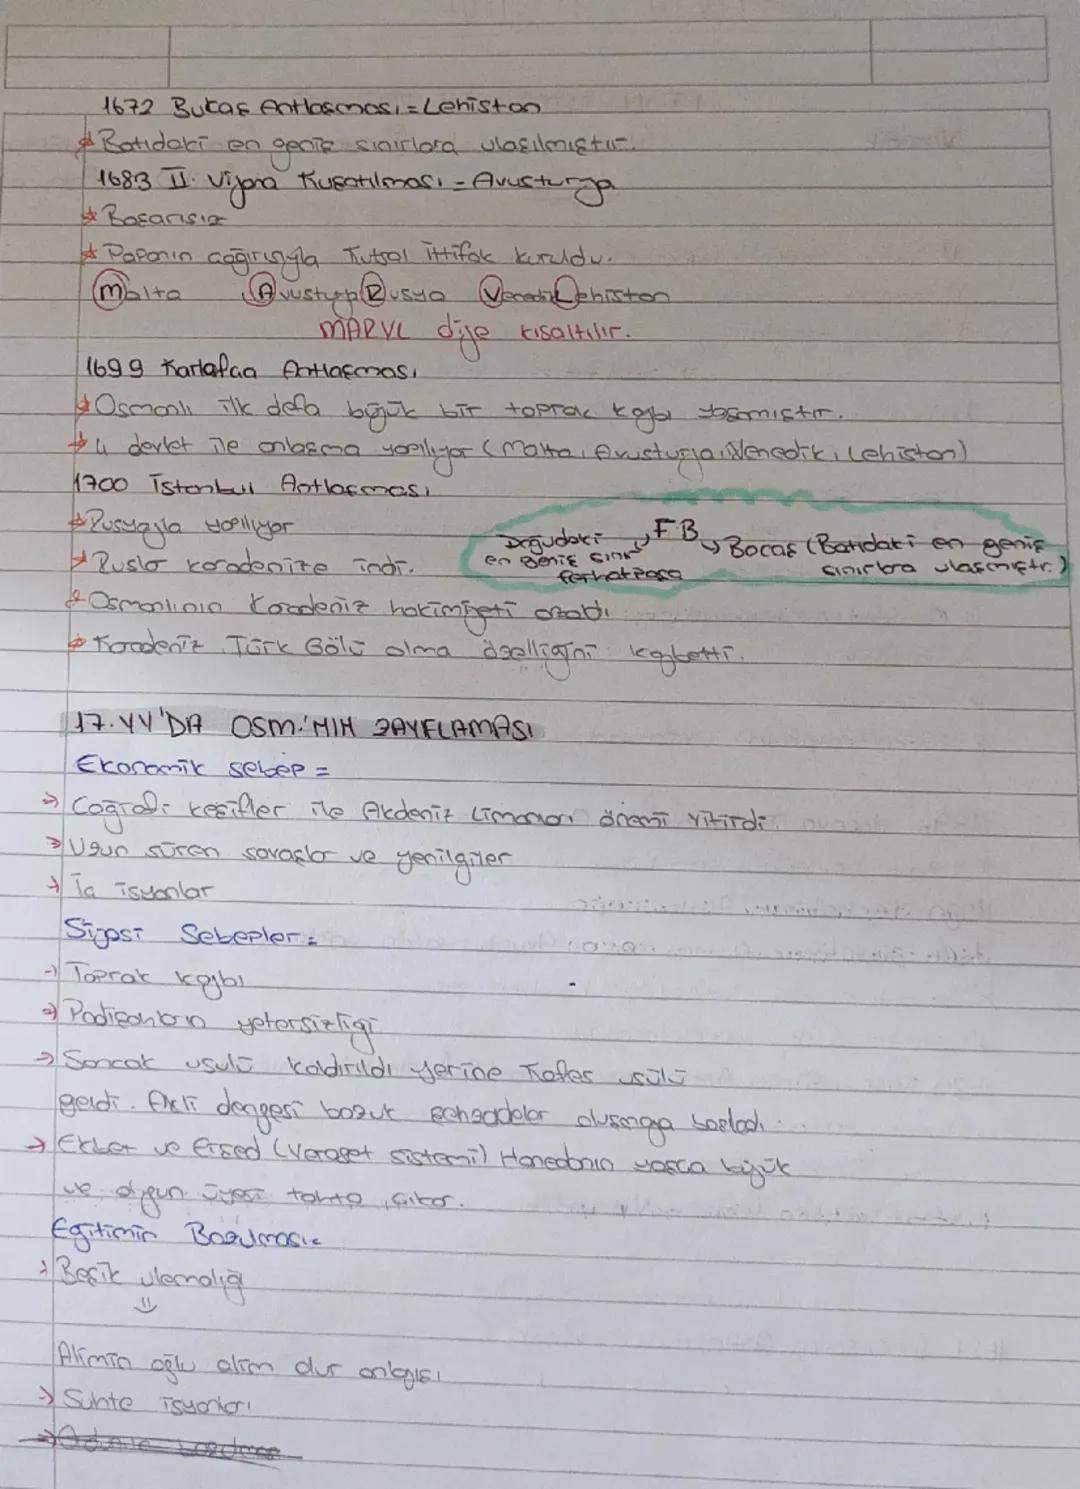 1672 Bucaş Antlaşması = Lehistan
* Batıdaki en geniş sınırlara ulaşılmıştır.
1683 II. Viyana Kuşatılması = Avusturya
* Başarısız
* Papanın çağrısıyla Kutsal İttifak kuruldu.
Malta Avusturya Rusya Venedik Lehistan
MARVL diye kısaltılır.
1699 Karlofça Antlaşması
* Osmanlı ilk defa büyük bir toprak kaybı yaşamıştır.
* 4 devlet ile anlaşma yapılıyor (Malta, Avusturya, Venedik, Lehistan)
1700 İstanbul Antlaşması
* Rusyayla yapılıyor
* Ruslar karadenize indi.
Doğudaki en geniş sınır ferhatpaşa
FB
Bocaş (Batıdaki en geniş
sınırlara ulaşmıştır.)
* Osmanlının Karadeniz hakimiyeti azaldı
* Karadeniz Türk Gölü olma özelliğini kaybetti.
17.YY'DA OSM.'NIN ZAYFLAMASI
Ekonomik sebep =
→ Coğrafi keşifler ile Akdeniz Limanları önemi yitirdi.
→ Uzun süren savaşlar ve yenilgiler
→ İç isyanlar
Siyasi Sebepler =
→ Toprak kaybı
→ Padişahların yetersizliği
→ Sancak usulü kaldırıldı yerine Kafes usülü
geldi. Akli dengesi bozuk şehzadeler oluşmaya başladı.
→ Ekber ve Erşed (Veraset sistemi) Hanedanın yaşça büyük
ve olgun üyesi tahta çıkar.
Eğitimin Bozulması =
→ Beşik ulemalığı
Alimin oğlu alim dur anlayışı
→ Suhte isyanları